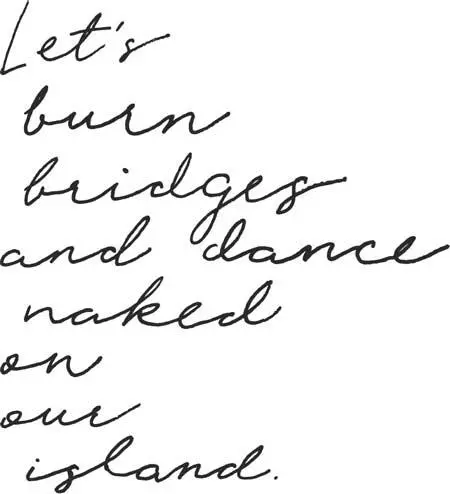 Let's
burn
bridges
and dance
naked
on
our
island.